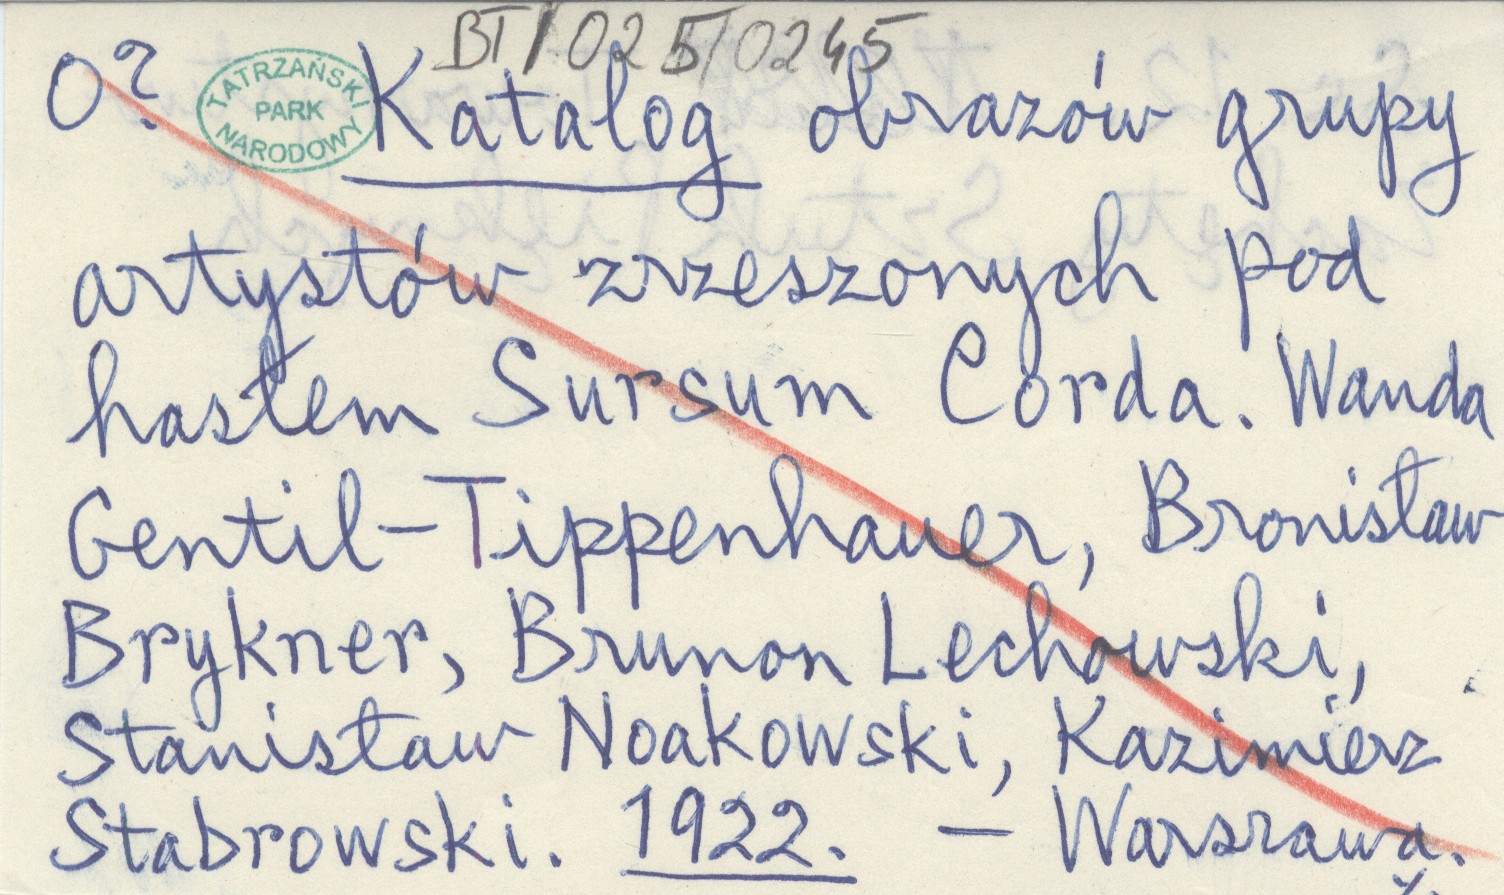 BT/025/0245
O?
TATRZAŃSKI
PARK
NARODOWY
Katalog obrazów grupy
artystów zrzeszonych pod
hasłem Sursum Corda. Wanda
Gentil-Tippenhauer, Bronisław
Brykner, Brunon Lechowski,
Stanisław Noakowski, Kazimierz
Stabrowski. 1922. — Warszawa.